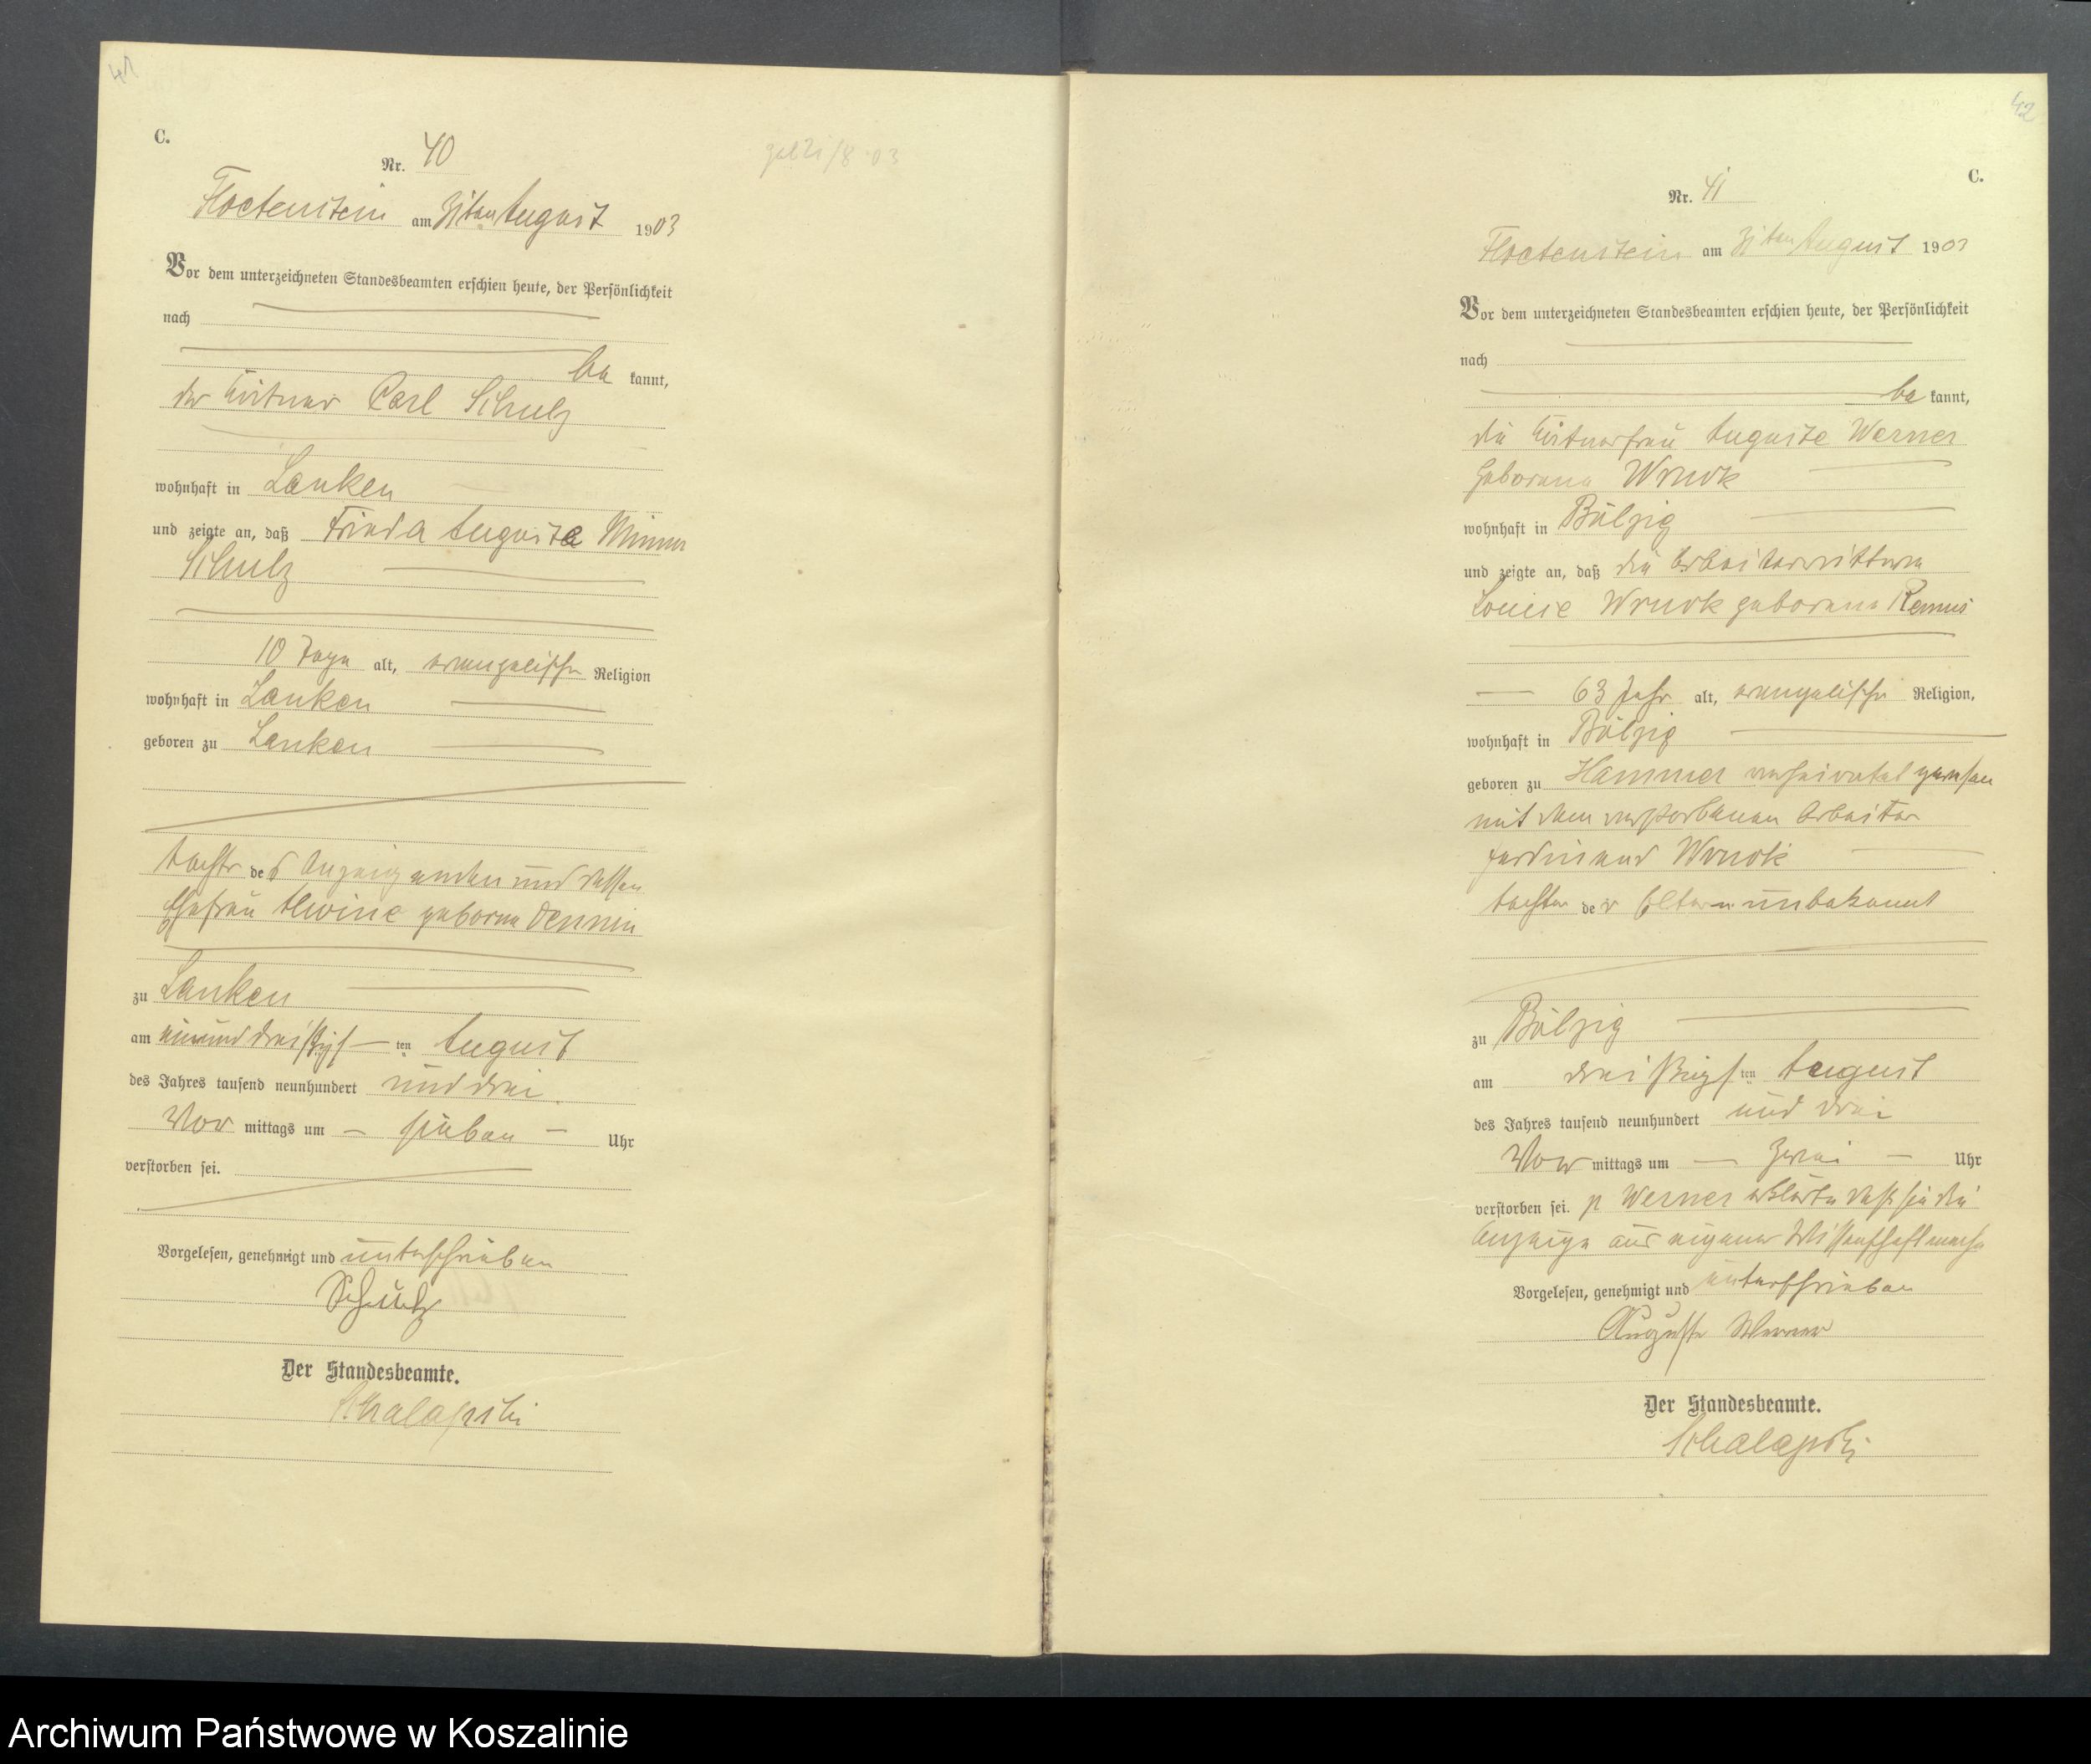 41
C.
Nr. 40
geb 21/8 03
Floetenstein am 31ten August 1903
Vor dem unterzeichneten Standesbeamten erschien heute, der Persönlichkeit
nach
be kannt,
der Carl Schulz
wohnhaft in Lanken
und zeigte an, daß Frieda Auguste Minna
Schulz
10 Tage alt, evangelischer Religion
wohnhaft in Lanken
geboren zu Lanken
Tochter des Anzeigenden und dessen
Ehefrau Alwine geborne Dennin
zu Lanken
am einunddreißigsten August
des Jahres tausend neunhundert und drei
Vor mittags um sieben Uhr
verstorben sei.
Vorgelesen, genehmigt und unterschrieben
Schulz
Der Standesbeamte.
Schalapski
42
C.
Nr. 41
Floetenstein am 31ten August 1903
Vor dem unterzeichneten Standesbeamten erschien heute, der Persönlichkeit
nach
be kannt,
die Auguste Werner
geborene Wruck
wohnhaft in Bölzig
und zeigte an, daß die Arbeiterwittwe
Louise Wruck geborene Remus
63 Jahr alt, evangelischer Religion,
wohnhaft in Bölzig
geboren zu Hammer verheiratet gewesen
mit dem verstorbenen Arbeiter
Ferdinand Wruck
Tochter der Eltern unbekannt
zu Bölzig
am dreißigsten August
des Jahres tausend neunhundert und drei
Vor mittags um zwei Uhr
verstorben sei. p Werner erklärte daß sie die
Anzeige aus eigener Wissenschaft mache
Vorgelesen, genehmigt und unterschrieben
Auguste Werner
Der Standesbeamte.
Schalapski
Archiwum Państwowe w Koszalinie